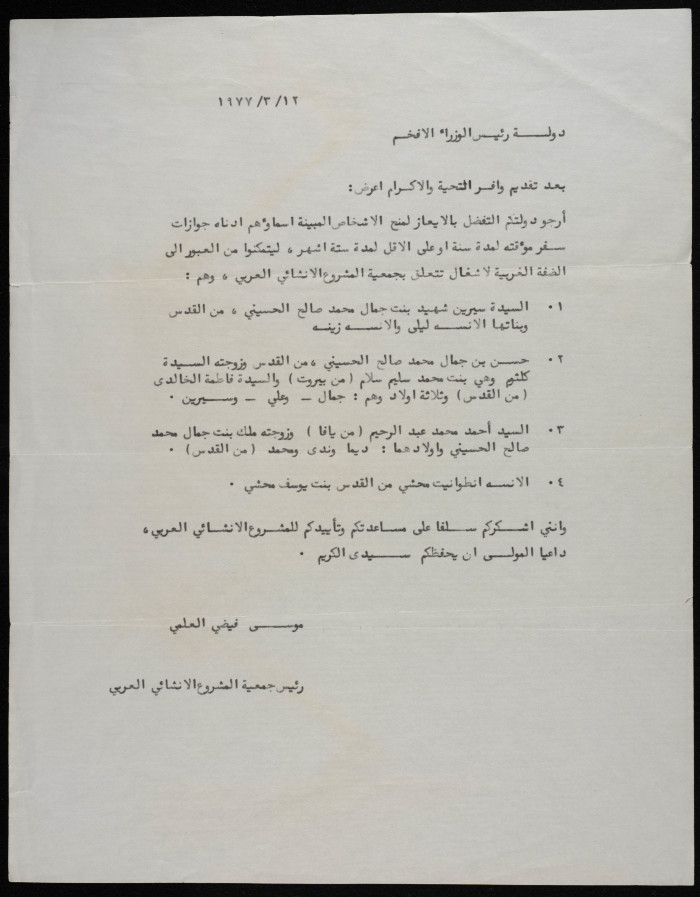 ١٩٧٧/٣/١٢
دولة رئيس الوزراء الافخم
بعد تقديم وافر التحية والاكرام اعرض :
أرجو دولتكم التفضل بالايعاز لمنح الاشخاص المبينة اسماؤهم ادناه جوازات
سفر مؤقته لمدة سنة او على الاقل لمدة ستة اشهر ، ليتمكنوا من العبور الى
الضفة الغربية لاشغال تتعلق بجمعية المشروع الانشائي العربي ، وهم :
٠١ السيدة سيرين شهيد بنت جمال محمد صالح الحسيني ، من القدس
وبناتها الانسه ليلى والانسه زينه
٠٢ حسن بن جمال محمد صالح الحسيني ، من القدس وزوجته السيدة
كلثوم وهي بنت محمد سليم سلام (من بيروت) والسيدة فاطمة الخالدى
(من القدس) وثلاثة اولاد وهم : جمال - وعلي - وسيرين ٠
٠٣ السيد أحمد محمد عبد الرحيم (من يافا) وزوجته ملك بنت جمال محمد
صالح الحسيني واولادهما : ديما وندى ومحمد (من القدس) ٠
٠٤ الانسه انطوانيت محشي من القدس بنت يوسف محشي ٠
وانني اشكركم سلفا على مساعدتكم وتأييدكم للمشروع الانشائي العربي ،
داعيا المولى ان يحفظكم سيدى الكريم ٠
موسى فيضي العلمي
رئيس جمعية المشروع الانشائي العربي